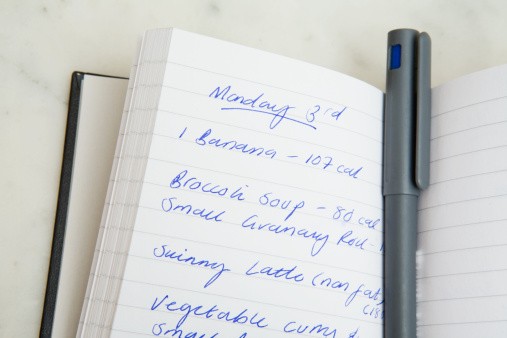 Monday 3rd
1 Banana - 107 cal
Broccoli Soup - 80 cal
Small Granary Roll -
Skinny Latte (non fat)
Vegetable curry
Small